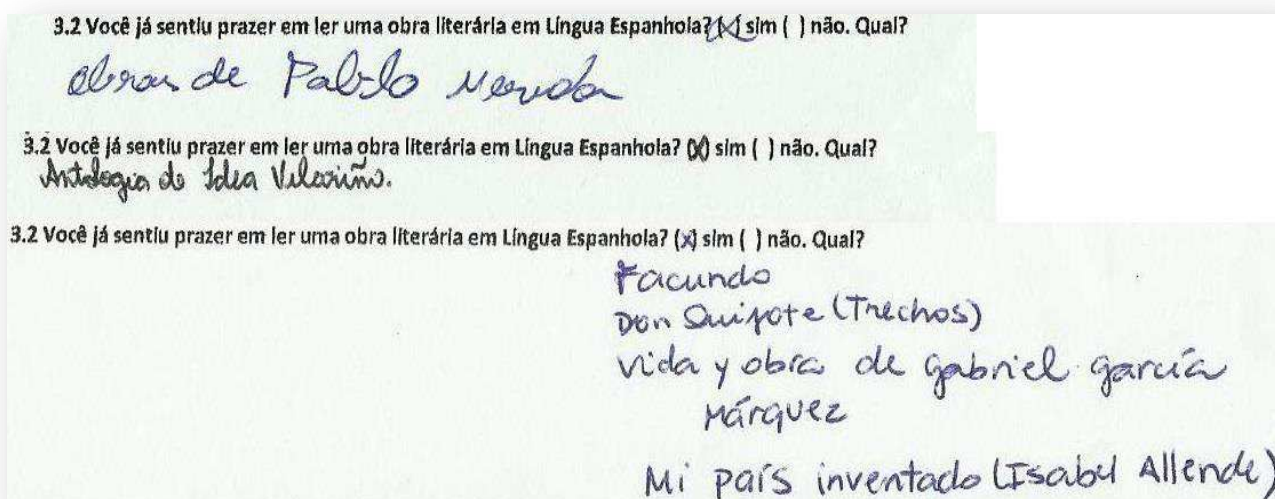 3.2 Você já sentiu prazer em ler uma obra literária em Língua Espanhola? (x) sim ( ) não. Qual?
Obras de Pablo Neruda
3.2 Você já sentiu prazer em ler uma obra literária em Língua Espanhola? (x) sim ( ) não. Qual?
Antologia de Idea Vilariño.
3.2 Você já sentiu prazer em ler uma obra literária em Língua Espanhola? (x) sim ( ) não. Qual?
Facundo
Don Quijote (Trechos)
Vida y obra de Gabriel García
Márquez
Mi país inventado (Isabel Allende)